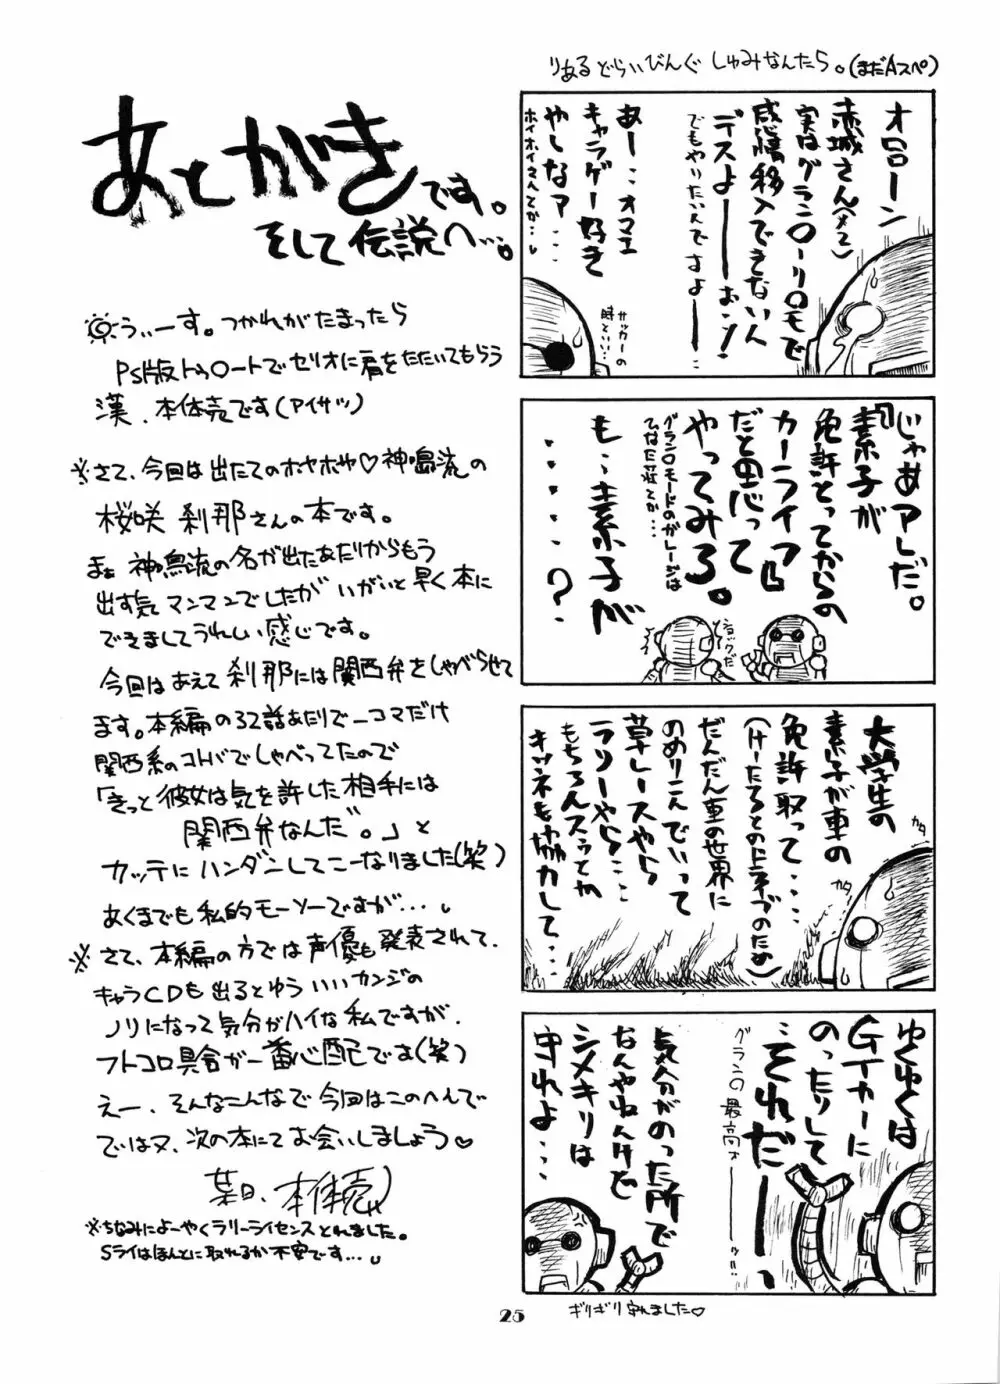 あとがきです。
そして伝説へ…。
うぃーす。つかれがたまったら
PS版トゥ○ートでセリオに肩をたたいてもらう
漢、本体売です(アイサツ)
※さて、今回は出たてのホヤホヤ♡神鳴流の
桜咲 刹那さんの本です。
まぁ神鳴流の名が出たあたりからもう
出す気マンマンでしたがいがいと早く本に
できましてうれしい感じです。
今回はあえて刹那には関西弁をしゃべらせて
ます。本編の32話あたりで一コマだけ
関西系のコトバでしゃべってたので
「きっと彼女は気を許した相手には
関西弁なんだ。」と
カッテにハンダンしてこーなりました(笑)
あくまでも私的モーソーですが…。
※さて、本編の方では声優も発表されて、
キャラCDも出るとゆういいカンジの
ノリになって気分がハイな私ですが、
フトコロ具合が一番心配です(笑)
えー、そんなこんなで今回はこのへんで
ではヌ、次の本にてお会いしましょう♡
某日、本体売
※ちなみによーやくラリーライセンスとれました。
Sライはほんとに取れるか不安です…。
りあるどらいびんぐ しゅみなんたら。(まだAスペ)
オローン
赤城さん(メ2)
実はグラン○ーリ○モで
感情移入できないん
デスよーーーおっ!
でもやりたいんですよーー…
あー…オマエ
キャラゲー好き
やしなァ…
ホイホイさんてか…
サッカーの
時といい…
『じゃあアレだ。
素子が
免許とってからの
カーライフ』
だと思って
やってみろ。
グラン○モードのガレージは
ひなた荘とか…
も…素子が
……?
ショックだ
大学生の
素子が車の
免許取って…
(けーたろとのドライブのため)
だんだん車の世界に
のめりこんでいって
草レースやら
ラリーやら…
もちろんスゥとか
キツネも協力して…
カタ
カタ
ゆくゆくは
GTカーに
のったりして
…それだーーっ
グラン○最高ォーーッ!!
気分がのった所で
なんやねんけど
シメキリは
守れよ…
ギリギリ守れました♡
25